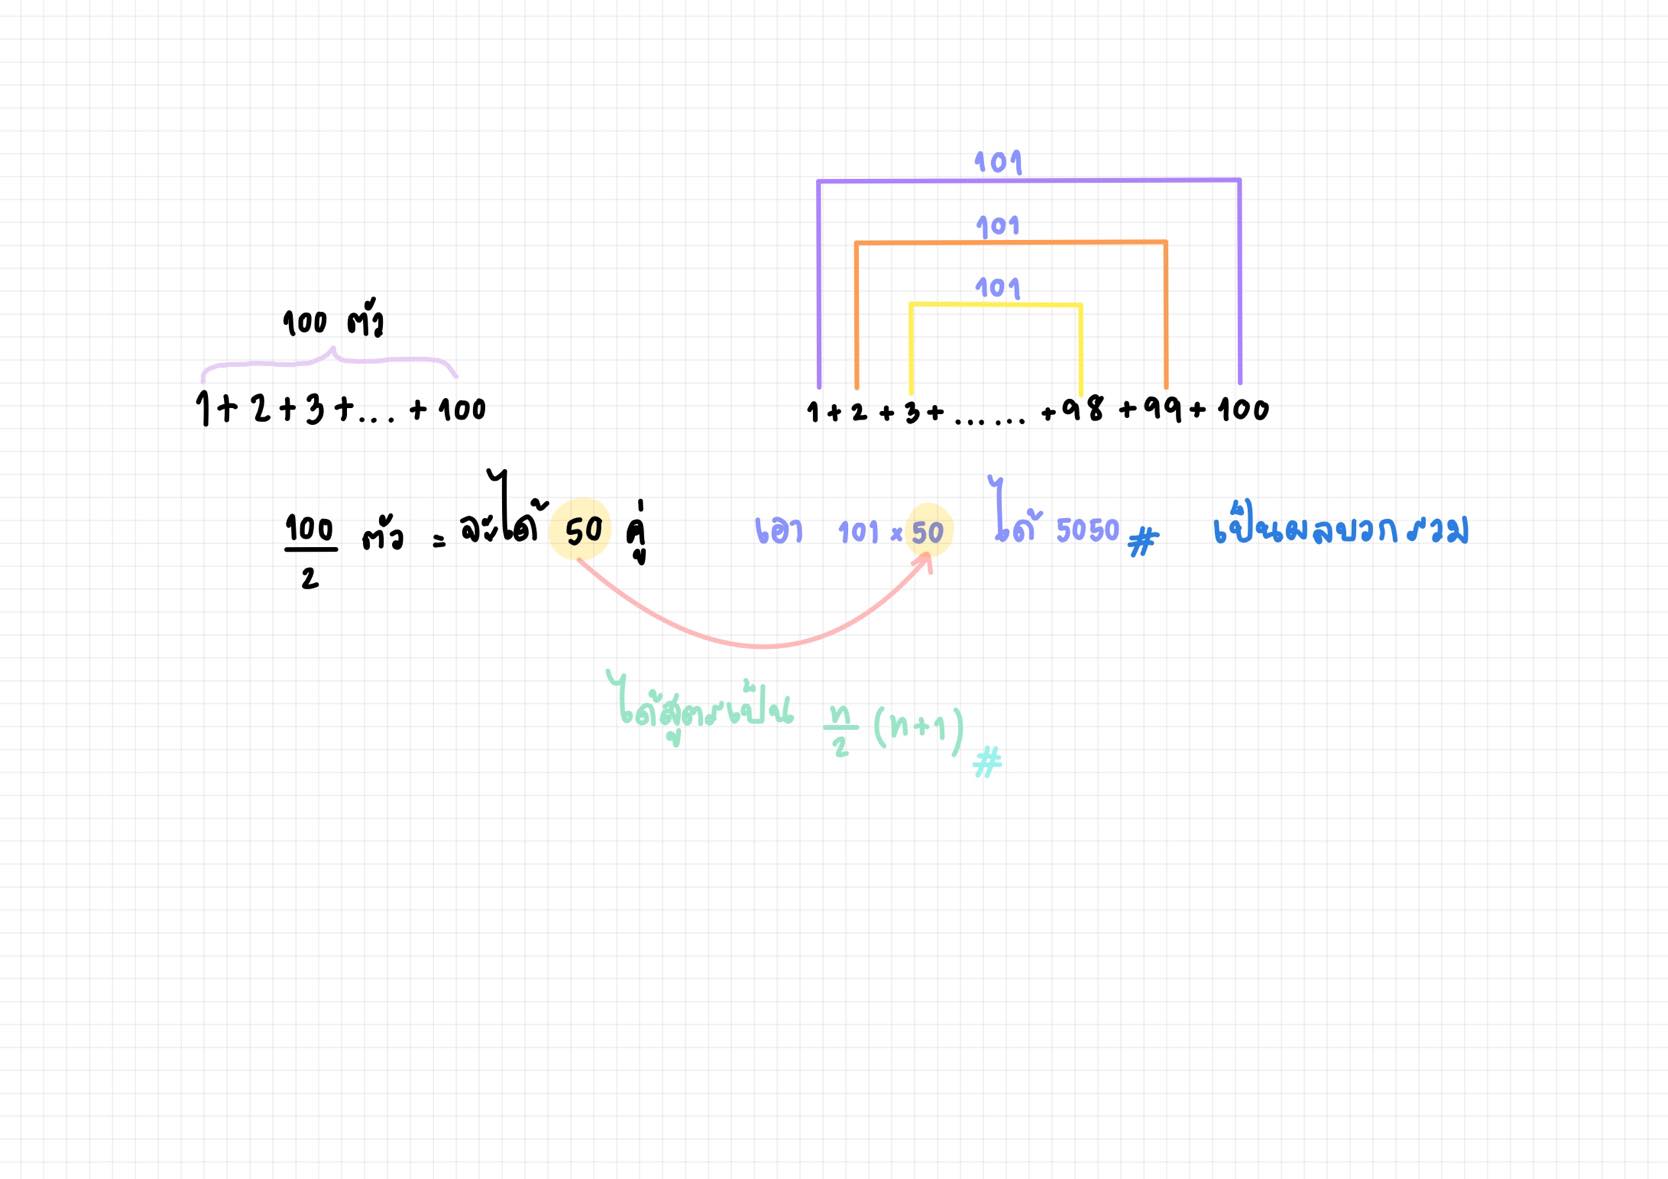 100 ตัว
1 + 2 + 3 + ... + 100
101
101
101
1 + 2 + 3 + ...... + 98 + 99 + 100
100/2 ตัว = จะได้ 50 คู่
เอา 101 × 50 ได้ 5050 # เป็นผลบวกรวม
ได้สูตรเป็น n/2 (n+1) #